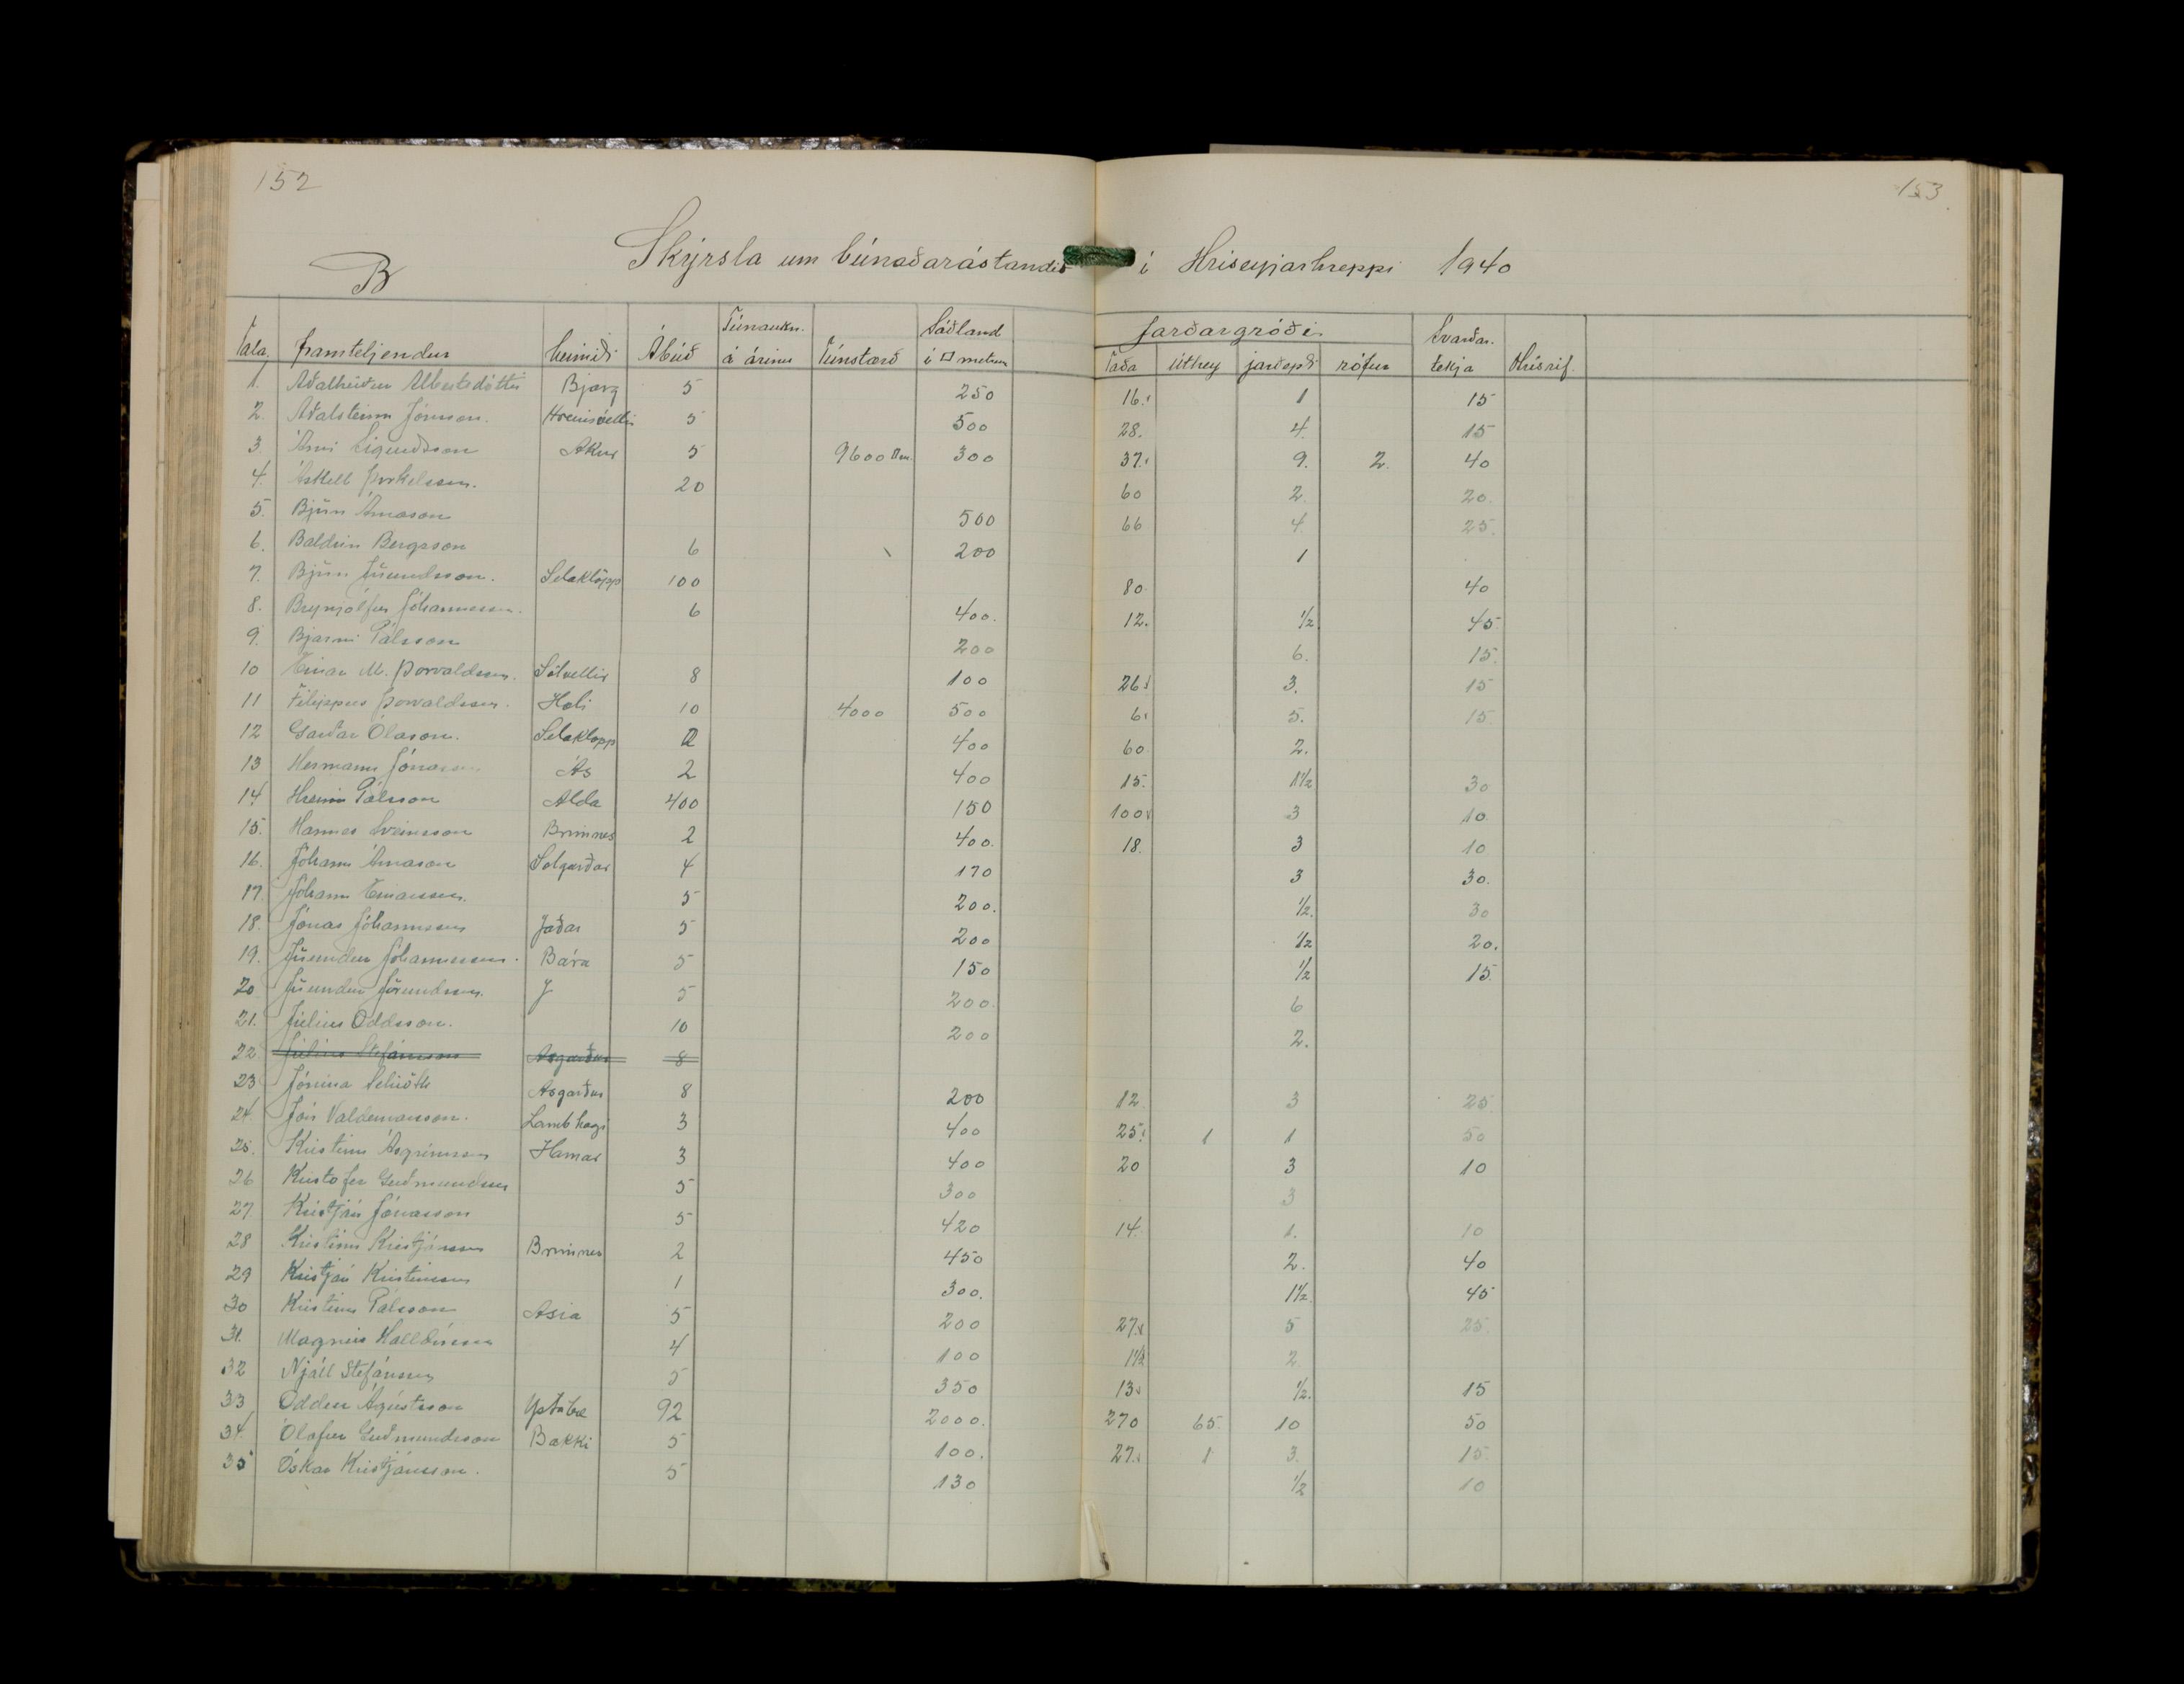 152
153.
B
Skýrsla um búnaðarástandið í Hríseyjarhreppi 1940
Tala framteljendur heimili Ábúð Túnaukn. á árinu Túnstærð Sáðland í □ metrum Jarðargróði Taða úthey jarðepli rófur Svarðartekja Hrísrif
1. Aðalheiður Albertsdóttir Bjarg 5 250 16. 1 15
2. Aðalsteinn Jónsson. 5 500 28. 4. 15
3. Árni Sigurðsson Akur 5 9600 □m. 300 37. 9. 2. 40
4. Áskell Þorkelsson. 20 60 2. 20.
5. Björn Árnason 500 66 4. 25.
6. Baldvin Bergsson 6 200 1
7. Björn Jörundsson. Selaklöpp 100 80 40
8. Brynjólfur Jóhannesson. 6 400. 12. 1/2 45.
9. Bjarni Pálsson 200 6. 15.
10 Einar M. Þorvaldsson. Sólvellir 8 100 26 3. 15
11 Filippus Þorvaldsson. Holi 10 4000 500 6 5. 15
12 Garðar Ólason. Selaklöpp 2 400 60 2.
13 Hermann Jónasson Ás 2 400 15. 1 1/2 30
14 Hreinn Pálsson Alda 400 150 100 3 10.
15. Hannes Sveinsson Brimnes 2 400. 18. 3 10
16. Jóhann Árnason Sólgarðar 4 170 3 30.
17. Jóhann Einarsson. 5 200. 1/2. 30
18. Jónas Jóhannsson Jaðar 5 200 1/2 20.
19. Jörundur Jóhannesson. Bára 5 150 1/2 15.
20 Jörundur Jörundsson. J 5 200. 6
21. Júlíus Oddsson. 10 200 2.
22 Júlíus Stefánsson Ásgarður 8
23 Jónína Schiöth Ásgarður 8 200 12 3 25
24. Jón Valdemarsson. Lambhagi 3 400 25. 1 1 50
25. Kristinn Ásgrímsson Hamar 3 400 20 3 10
26 Kristofer Guðmundsson 5 300 3
27 Kristján Jónasson 5 420 14. 1. 10
28 Kristinn Kristjánsson Brimnes 2 450 2. 40
29 Kristján Kristinsson 1 300. 1 1/2. 45
30 Kristinn Pálsson Asia 5 200 27. 5 25.
31. Magnús Halldórsson 4 100 1 1/2 2
32 Njáll Stefánsson 5 350 13 1/2. 15
33 Oddur Ágústsson Ystibæ 92 2000. 270 65. 10 50
34. Ólafur Guðmundsson Bakki 5 100. 27. 1 3. 15.
35 Óskar Kristjánsson. 5 130 1/2 10